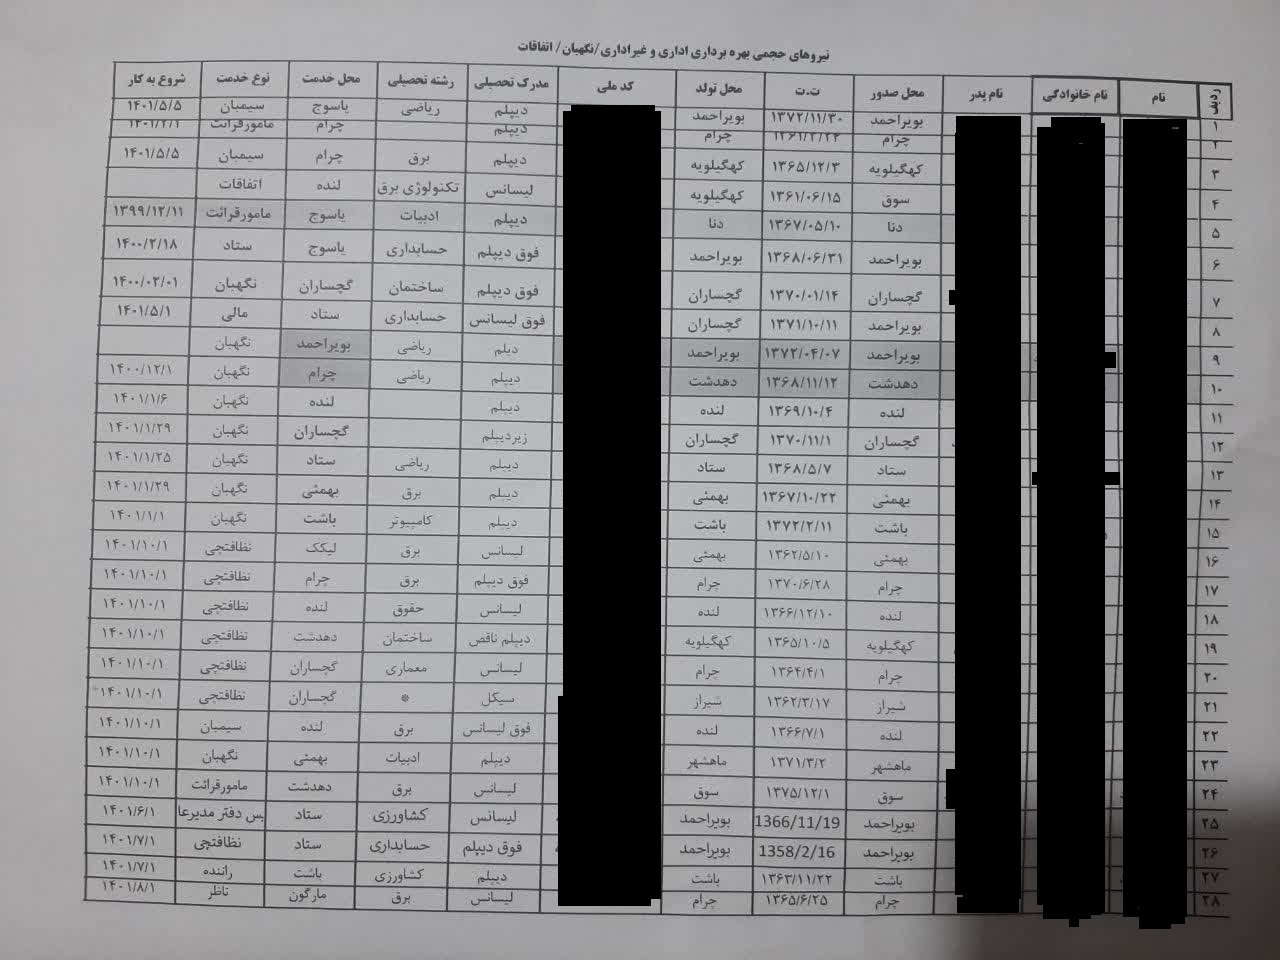 نیروهای حجمی بهره برداری اداری و غیراداری/نگهبان/ اتفاقات
ردیف نام نام خانوادگی نام پدر محل صدور ت.ت محل تولد کد ملی مدرک تحصیلی رشته تحصیلی محل خدمت نوع خدمت شروع به کار
۱ بویراحمد ۱۳۷۲/۱۱/۳۰ بویراحمد دیپلم ریاضی یاسوج سیمبان ۱۴۰۱/۵/۵
۲ چرام ۱۳۶۱/۳/۲۳ چرام دیپلم چرام مامورقرائت ۱۴۰۱/۲/۱
۳ کهگیلویه ۱۳۶۵/۱۲/۳ کهگیلویه دیپلم برق چرام سیمبان ۱۴۰۱/۵/۵
۴ سوق ۱۳۶۱/۰۶/۱۵ کهگیلویه لیسانس تکنولوژی برق لنده اتفاقات
۵ دنا ۱۳۶۷/۰۵/۱۰ دنا دیپلم ادبیات یاسوج مامورقرائت ۱۳۹۹/۱۲/۱۱
۶ بویراحمد ۱۳۶۸/۰۶/۳۱ بویراحمد فوق دیپلم حسابداری یاسوج ستاد ۱۴۰۰/۲/۱۸
۷ گچساران ۱۳۷۰/۰۱/۱۴ گچساران فوق دیپلم ساختمان گچساران نگهبان ۱۴۰۰/۰۲/۰۱
۸ بویراحمد ۱۳۷۱/۱۰/۱۱ گچساران فوق لیسانس حسابداری ستاد مالی ۱۴۰۱/۵/۱
۹ بویراحمد ۱۳۷۲/۰۴/۰۷ بویراحمد دیلم ریاضی بویراحمد نگهبان
۱۰ دهدشت ۱۳۶۸/۱۱/۱۲ دهدشت دیپلم ریاضی چرام نگهبان ۱۴۰۰/۱۲/۱
۱۱ لنده ۱۳۶۹/۱۰/۴ لنده دیپلم لنده نگهبان ۱۴۰۱/۱/۶
۱۲ گچساران ۱۳۷۰/۱۱/۱ گچساران زیردیپلم گچساران نگهبان ۱۴۰۱/۱/۲۹
۱۳ ستاد ۱۳۶۸/۵/۷ ستاد دیپلم ریاضی ستاد نگهبان ۱۴۰۱/۱/۲۵
۱۴ بهمئی ۱۳۶۷/۱۰/۲۲ بهمئی دیپلم برق بهمئی نگهبان ۱۴۰۱/۱/۲۹
۱۵ باشت ۱۳۷۲/۲/۱۱ باشت دیپلم کامپیوتر باشت نگهبان ۱۴۰۱/۱/۱
۱۶ بهمئی ۱۳۶۲/۵/۱۰ بهمئی لیسانس برق لیکک نظافتچی ۱۴۰۱/۱۰/۱
۱۷ چرام ۱۳۷۰/۶/۲۸ چرام فوق دیپلم برق چرام نظافتچی ۱۴۰۱/۱۰/۱
۱۸ لنده ۱۳۶۶/۱۲/۱۰ لنده لیسانس حقوق لنده نظافتچی ۱۴۰۱/۱۰/۱
۱۹ کهگیلویه ۱۳۶۵/۱۰/۵ کهگیلویه دیپلم ناقص ساختمان دهدشت نظافتچی ۱۴۰۱/۱۰/۱
۲۰ چرام ۱۳۶۴/۴/۱ چرام لیسانس معماری گچساران نظافتچی ۱۴۰۱/۱۰/۱
۲۱ شیراز ۱۳۶۲/۳/۱۷ شیراز سیکل * گچساران نظافتچی ۱۴۰۱/۱۰/۱
۲۲ لنده ۱۳۶۶/۷/۱ لنده فوق لیسانس برق لنده سیمبان ۱۴۰۱/۱۰/۱
۲۳ ماهشهر ۱۳۷۱/۳/۲ ماهشهر دیپلم ادبیات بهمئی نگهبان ۱۴۰۱/۱۰/۱
۲۴ سوق ۱۳۷۵/۱۲/۱ سوق لیسانس برق دهدشت مامورقرائت ۱۴۰۱/۱۰/۱
۲۵ بویراحمد 1366/11/19 بویراحمد لیسانس کشاورزی ستاد یس دفتر مدیرعا ۱۴۰۱/۶/۱
۲۶ بویراحمد 1358/2/16 بویراحمد فوق دیپلم حسابداری ستاد نظافتچی ۱۴۰۱/۷/۱
۲۷ باشت ۱۳۶۳/۱۱/۲۲ باشت دیپلم کشاورزی باشت راننده ۱۴۰۱/۷/۱
۲۸ چرام ۱۳۶۵/۶/۲۵ چرام لیسانس برق مارگون ناظر ۱۴۰۱/۸/۱